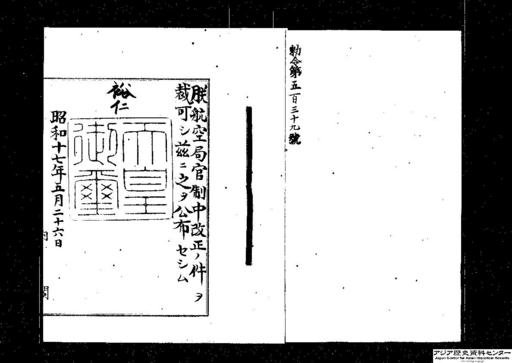 勅令第五百三十九號
朕航空局官制中改正ノ件ヲ
裁可シ茲ニ之ヲ公布セシム
裕仁
天皇
御璽
昭和十七年五月二十六日
内 閣
アジア歴史資料センター
Japan Center for Asian Historical Records